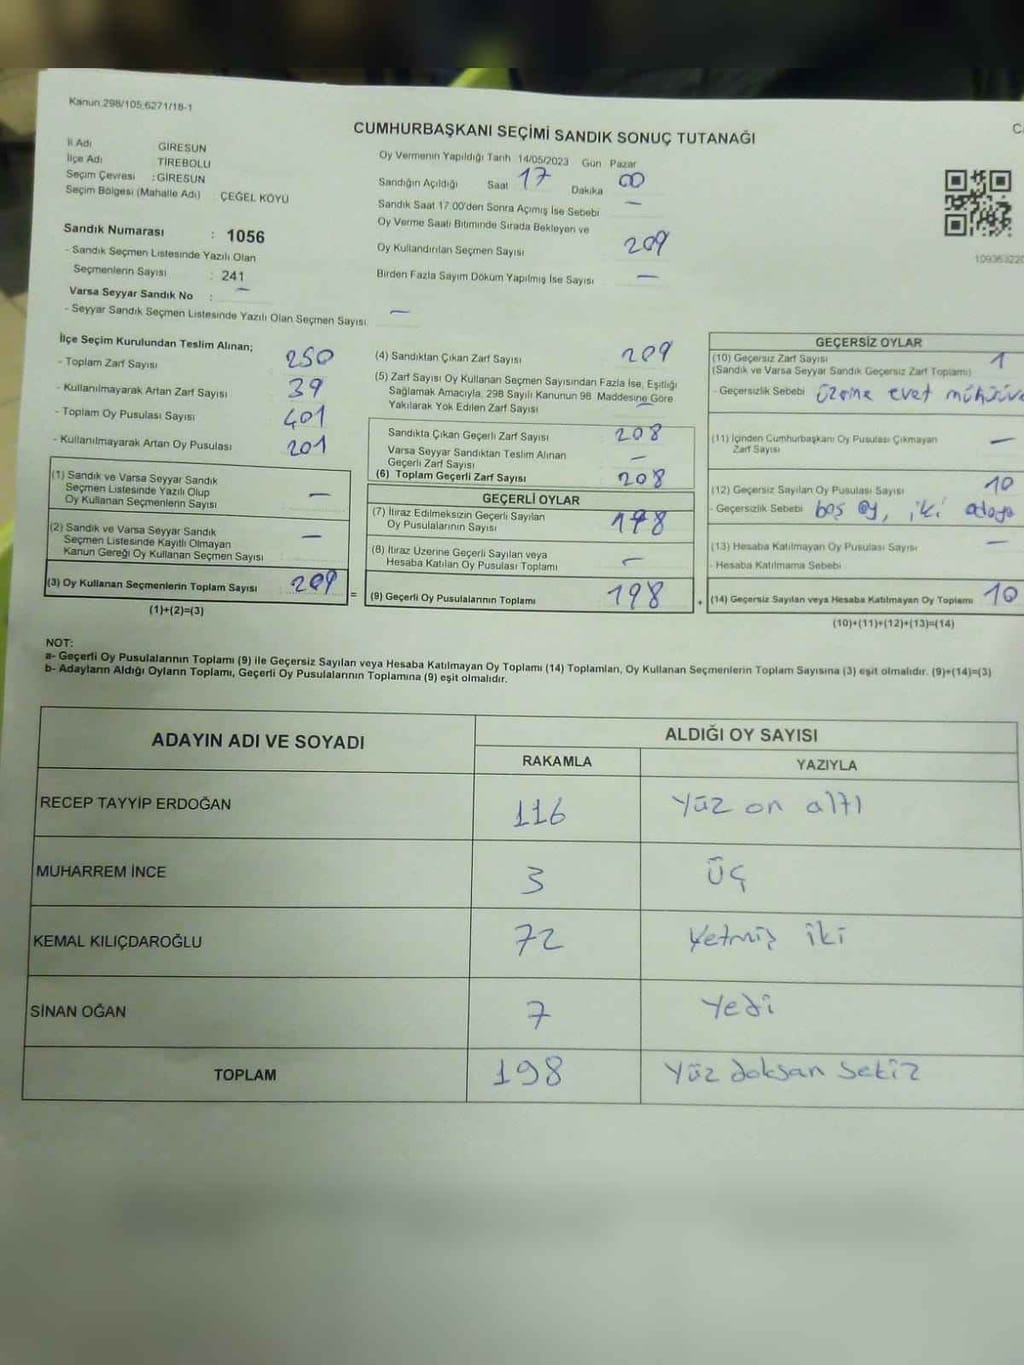 Kanun:298/105,6271/18-1
CUMHURBAŞKANI SEÇİMİ SANDIK SONUÇ TUTANAĞI
İl Adı GİRESUN
İlçe Adı TİREBOLU
Seçim Çevresi :GİRESUN
Seçim Bölgesi (Mahalle Adı) ÇEĞEL KÖYÜ
Sandık Numarası : 1056
- Sandık Seçmen Listesinde Yazılı Olan
Seçmenlerin Sayısı : 241
Varsa Seyyar Sandık No : -
- Seyyar Sandık Seçmen Listesinde Yazılı Olan Seçmen Sayısı -
Oy Vermenin Yapıldığı Tarih 14/05/2023 Gün Pazar
Sandığın Açıldığı Saat 17 Dakika 00
Sandık Saat 17:00'den Sonra Açımış İse Sebebi -
Oy Verme Saati Bitiminde Sırada Bekleyen ve
Oy Kullandırılan Seçmen Sayısı 209
Birden Fazla Sayım Döküm Yapılmış İse Sayısı -
İlçe Seçim Kurulundan Teslim Alınan;
- Toplam Zarf Sayısı 250
- Kullanılmayarak Artan Zarf Sayısı 39
- Toplam Oy Pusulası Sayısı 401
- Kullanılmayarak Artan Oy Pusulası 201
(1) Sandık ve Varsa Seyyar Sandık
Seçmen Listesinde Yazılı Olup
Oy Kullanan Seçmenlerin Sayısı -
(2) Sandık ve Varsa Seyyar Sandık
Seçmen Listesinde Kayıtlı Olmayan
Kanun Gereği Oy Kullanan Seçmen Sayısı -
(3) Oy Kullanan Seçmenlerin Toplam Sayısı 209 =
(1)+(2)=(3)
(4) Sandıktan Çıkan Zarf Sayısı 209
(5) Zarf Sayısı Oy Kullanan Seçmen Sayısından Fazla İse, Eşitliği
Sağlamak Amacıyla, 298 Sayılı Kanunun 98. Maddesine Göre
Yakılarak Yok Edilen Zarf Sayısı -
Sandıkta Çıkan Geçerli Zarf Sayısı 208
Varsa Seyyar Sandıktan Teslim Alınan
Geçerli Zarf Sayısı -
(6) Toplam Geçerli Zarf Sayısı 208
GEÇERLİ OYLAR
(7) İtiraz Edilmeksizin Geçerli Sayılan
Oy Pusulalarının Sayısı 198
(8) İtiraz Üzerine Geçerli Sayılan veya
Hesaba Katılan Oy Pusulası Toplamı -
(9) Geçerli Oy Pusulalarının Toplamı 198 +
GEÇERSİZ OYLAR
(10) Geçersiz Zarf Sayısı 1
(Sandık ve Varsa Seyyar Sandık Geçersiz Zarf Toplamı)
- Geçersizlik Sebebi üzerine evet
(11) İçinden Cumhurbaşkanı Oy Pusulası Çıkmayan
Zarf Sayısı -
(12) Geçersiz Sayılan Oy Pusulası Sayısı 10
- Geçersizlik Sebebi boş oy, iki adaya
(13) Hesaba Katılmayan Oy Pusulası Sayısı -
- Hesaba Katılmama Sebebi
(14) Geçersiz Sayılan veya Hesaba Katılmayan Oy Toplamı 10
(10)+(11)+(12)+(13)=(14)
NOT:
a- Geçerli Oy Pusulalarının Toplamı (9) ile Geçersiz Sayılan veya Hesaba Katılmayan Oy Toplamı (14) Toplamları, Oy Kullanan Seçmenlerin Toplam Sayısına (3) eşit olmalıdır. (9)+(14)=(3)
b- Adayların Aldığı Oyların Toplamı, Geçerli Oy Pusulalarının Toplamına (9) eşit olmalıdır.
ADAYIN ADI VE SOYADI ALDIĞI OY SAYISI
RAKAMLA YAZIYLA
RECEP TAYYİP ERDOĞAN 116 Yüz on altı
MUHARREM İNCE 3 Üç
KEMAL KILIÇDAROĞLU 72 Yetmiş iki
SİNAN OĞAN 7 Yedi
TOPLAM 198 Yüz doksan sekiz